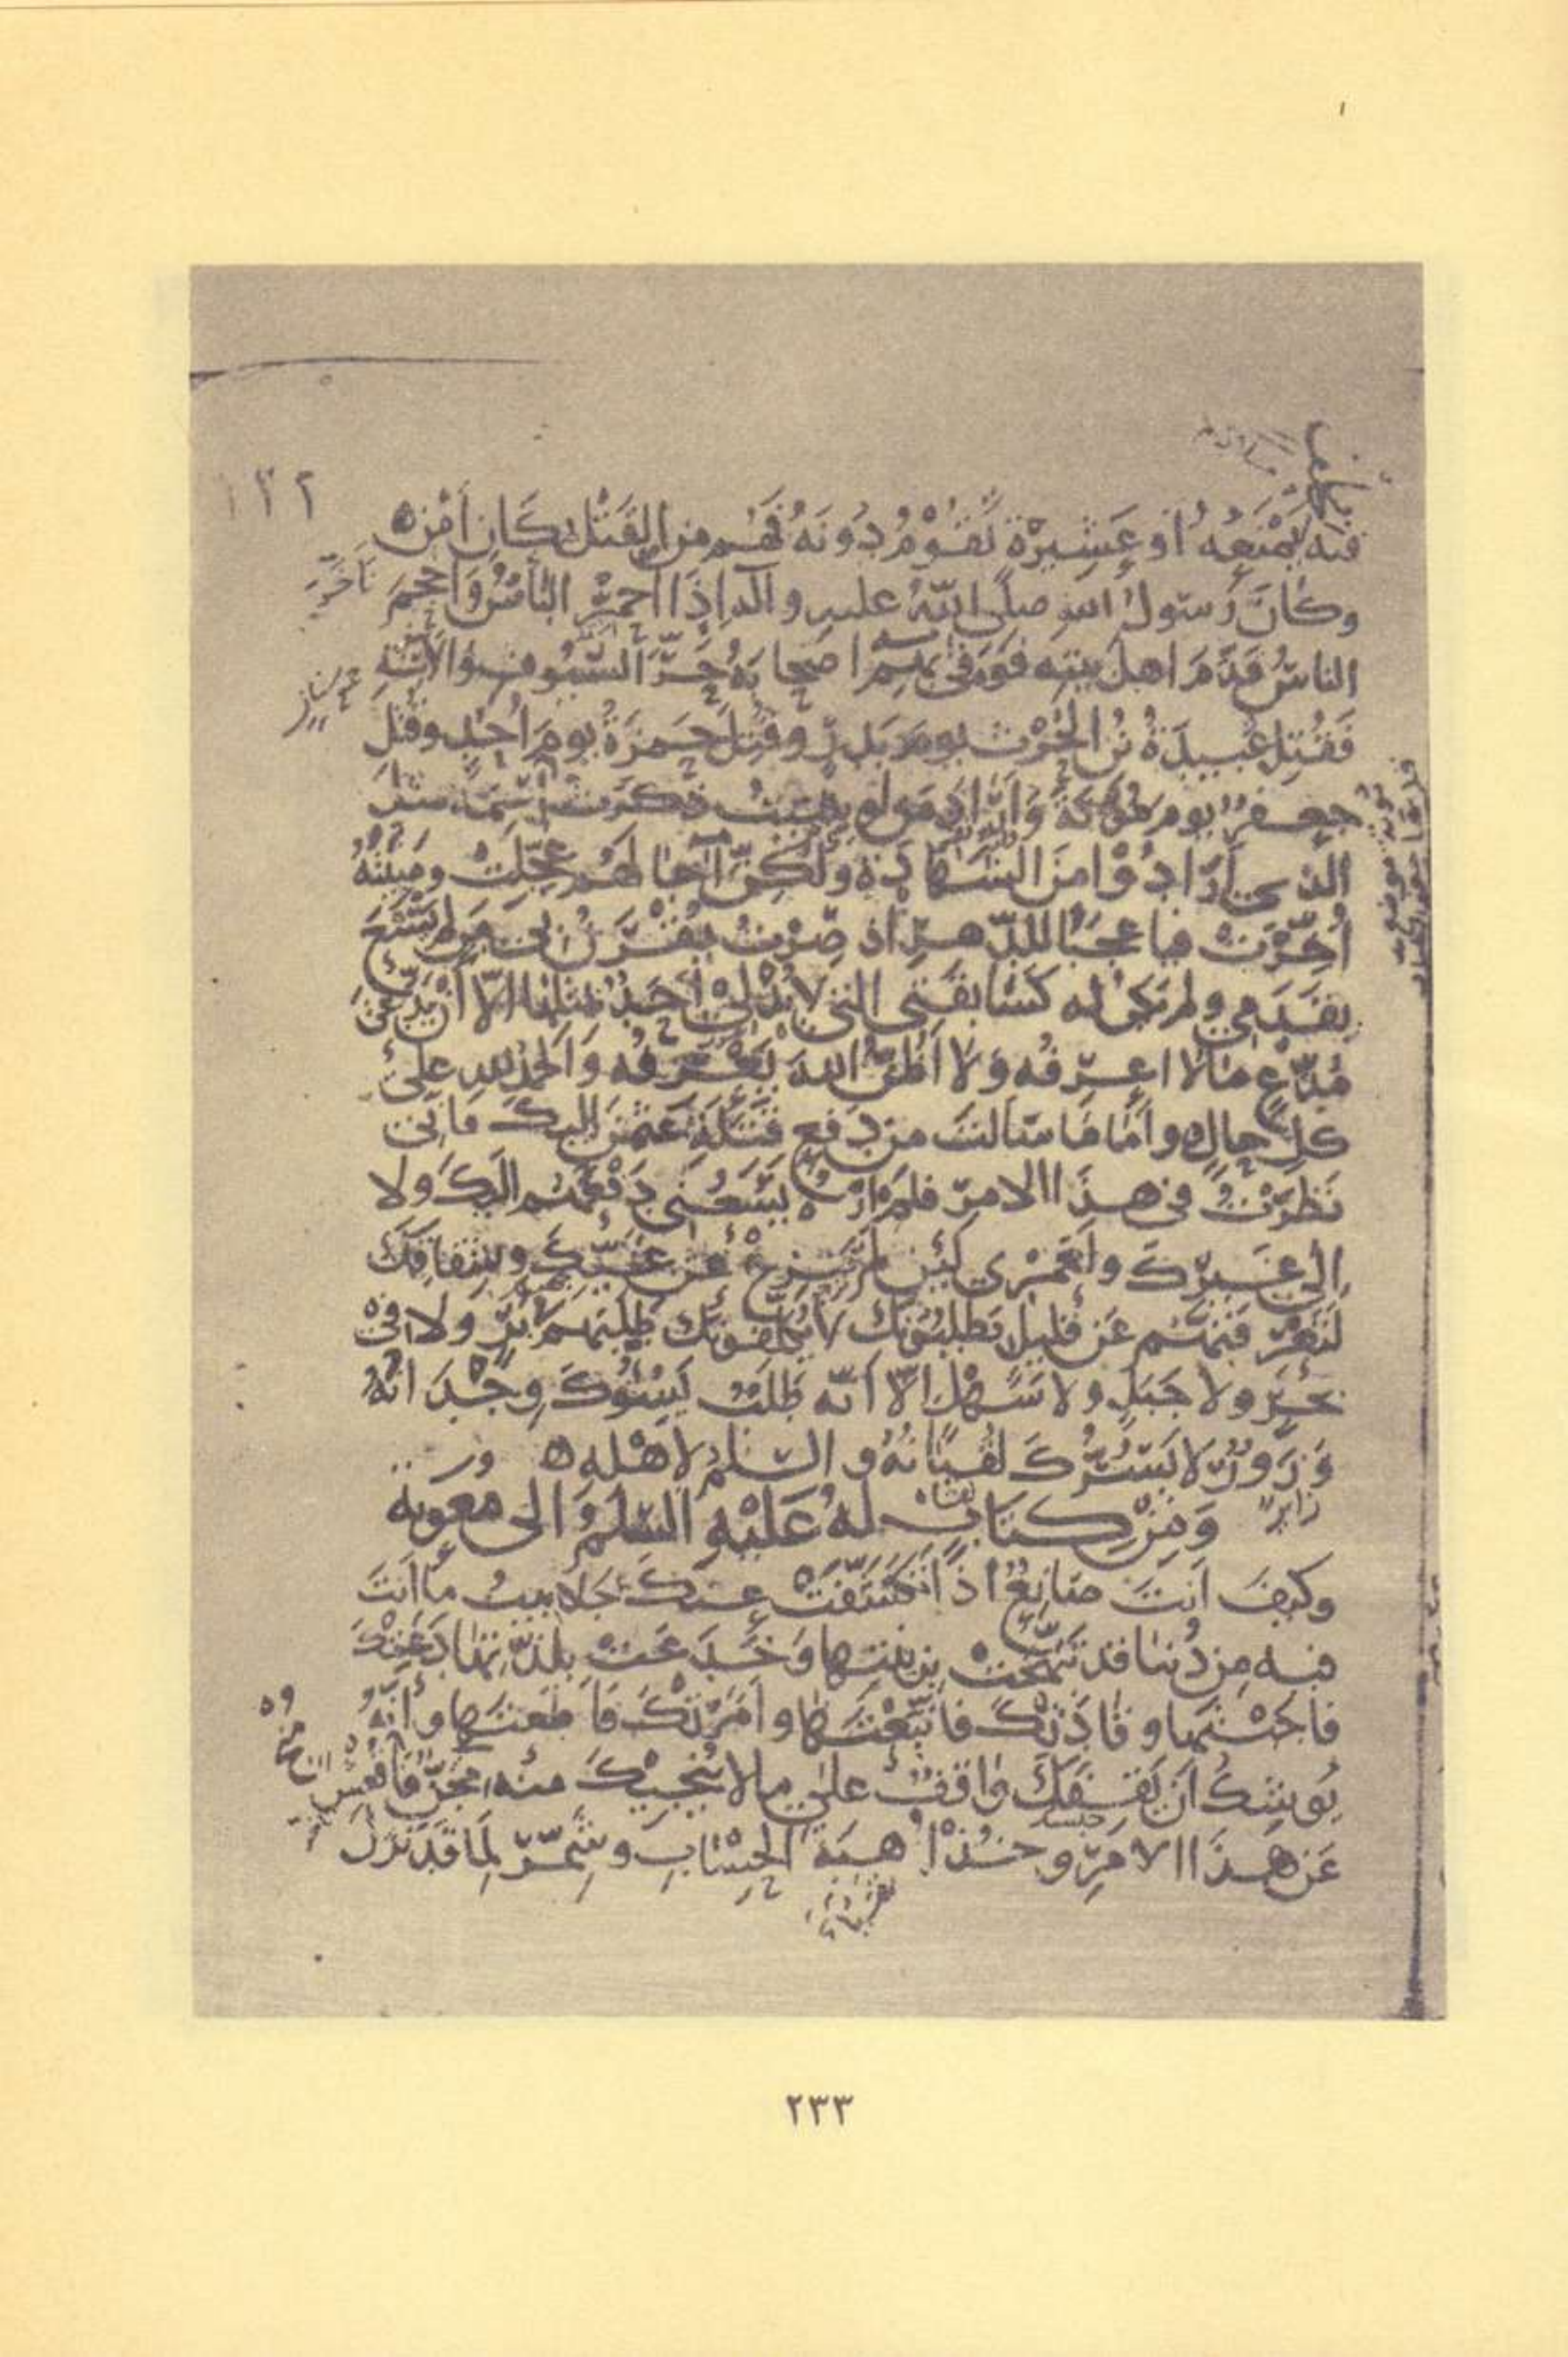 ١٢٢
فنه يَمْنَعُهُ أو عَشِيرَةٍ تَقُوْمُ دُونَهُ فَهُم من القَتْلِ بمَكَانِ أَمْنٍ ه
وكانَ رَسولُ اللهِ صلَّى اللهُ عليهِ وآله إذَا احْمَرَّ البَأْسُ وَأَحْجَمَ
تَأَخَّرَ
الناسُ قَدَّمَ اهلَ بيتِه فَوَقَى بِهِم أصحابَهُ حَرَّ السُّيُوفِ والأَسِنَّةِ
فَقُتِلَ عُبيدَةُ بْنُ الحرْثِ يومَ بَدرٍ وقُتِلَ حَمزَةُ يومَ أُحُدٍ وقُتِلَ
جعفرٌ يومَ مُؤْتَةَ وَأَرَادَ مَن لو شِئتُ ذَكَرتُ اسْمَهُ مثلَ
الذي أَرَادُوْا مِنَ الشَّهادَةِ ولكِنَّ آجالَهُم عُجِّلَتْ ومَنِيَّتُهُ
أُخِّرَتْ فيا عجبًا للدَّهرِ إذ صِرْتُ يُقْرَنُ بي مَن لم يَسْعَ
بقَدَمِي ولم تكن له كَسَابِقَتِي التي لا يُدْلِيْ أَحَدٌ بمثلِها إلّا أَنْ يَدَّعِيَ
مُدَّعٍ مالا اعرِفُه وَلا أَظُنُّ اللهَ يَعْرِفُه وَالحَمدُ للهِ عَلى
كلِّ حالٍ ه وأمَّا مَا سَألتَ مِن دَفعِ قَتَلَةِ عثمنَ إليكَ فإنّي
نَظَرْتُ في هذا الامرِ فلَم أرَهُ يَسَعُنِي دَفْعُهُم إليكَ ولا
إلى غيرِكَ ولَعَمْرِي لَئِن لم تَنزِعْ عَن غَيِّكَ وشِقَاقِكَ
لَتَعْرِفَنَّهُم عَن قَليلٍ يَطلبُونَكَ لا يُكَلِّفونَكَ طَلَبَهُم في بَرٍّ ولا في
بحرٍ ولا جَبَلٍ ولا سَهْلٍ إلّا أنّه طَلَبٌ يَسُوْءُكَ وِجْدَانُهُ
وَزَوْرٌ لا يَسُرُّكَ لُقْيَانُهُ و السّلمُ لأهْلِه ه
وَمِنْ كِتَابٍ لَهُ عَلَيْهِ السَّلمُ إلى معوية
وكيفَ أنتَ صَانِعٌ إذَا تَكَشَّفَتْ عنكَ جَلابيبُ ما أنتَ
فيه مِن دُنيا قد تَبَهَّجَتْ بزينتِها وَخَدَعَت بلذّتِها دَعَتْكَ
فاجَبْتَها وقَادَتْكَ فاتَّبَعْتَها وأَمَرَتْكَ فَأطَعتَها وإنَّهُ
يُوشِكُ أن يَقِفَكَ وَاقِفٌ على ما لا يُنْجِيكَ منه مِجَنٌّ فَاقْعَسْ
عَن هذَا الامرِ وخُذْ أُهبَةَ الحِسَابِ وشَمِّرْ لِمَا قَد نَزَلَ
٢٣٣